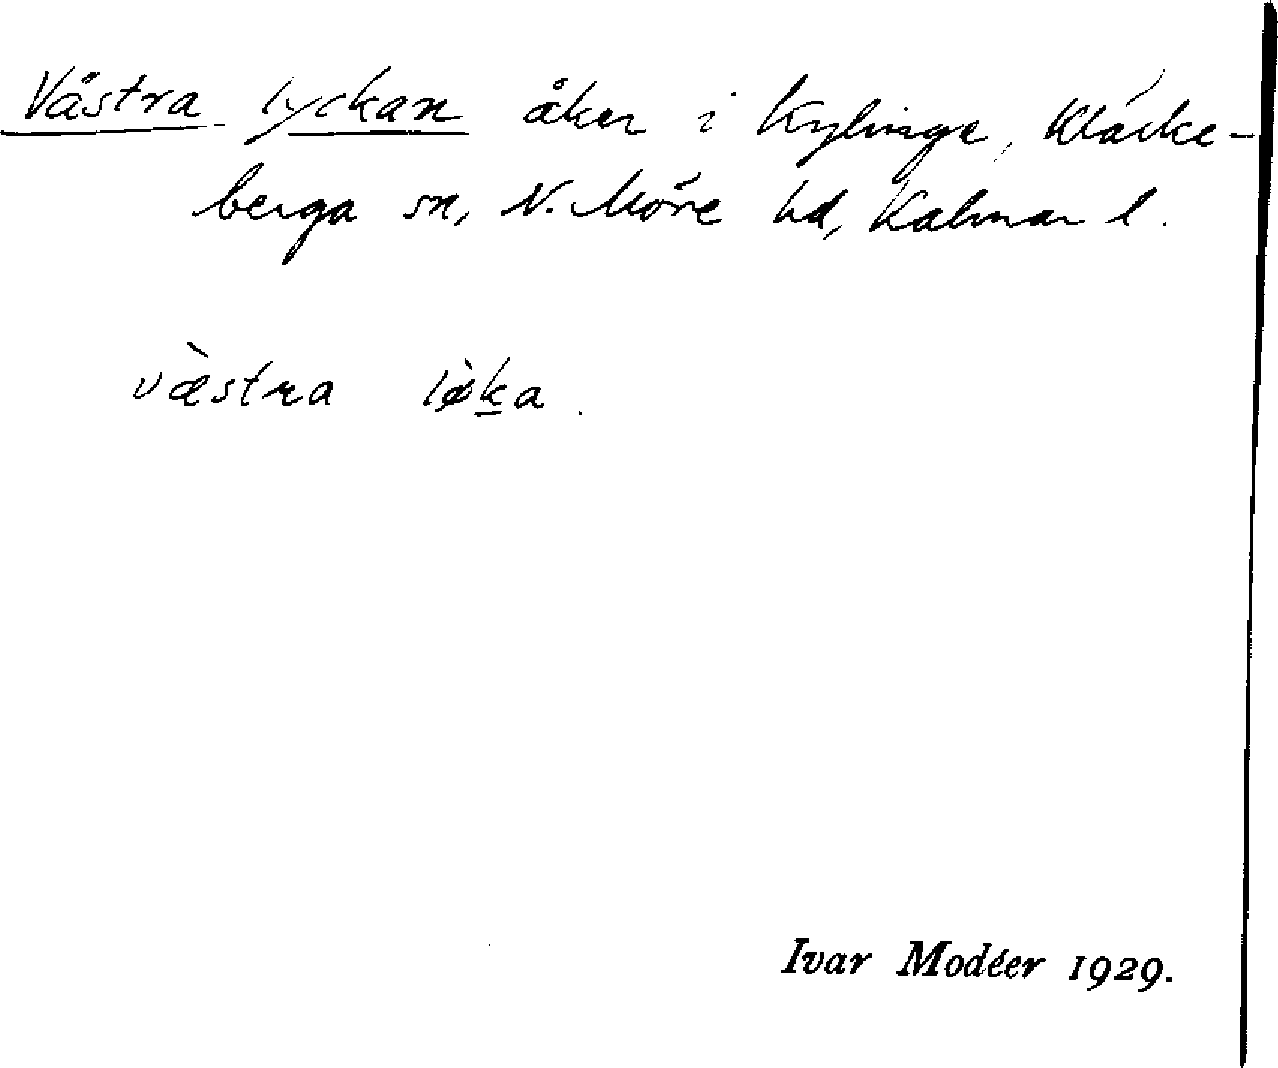 Västra lyckan åker i Kylinge, Kläcke-
berga sn, N. Möre hd, Kalmar l.
væ̀stra lø̀ḵa.
Ivar Modéer 1929.